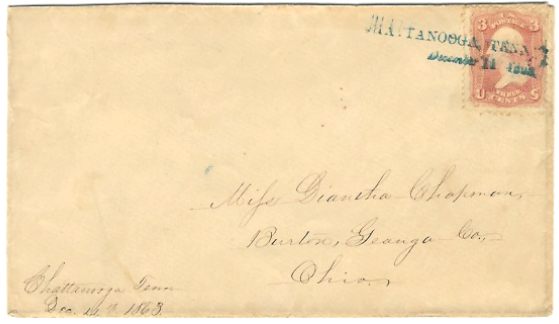 CHATTANOOGA, TENN.
December 11 1863
3 3
U.S. POSTAGE
U S
THREE CENTS
Miss Diancha Chapman,
Burton, Geauga Co.,
Ohio,
Chattanooga Tenn
Dec. 1863